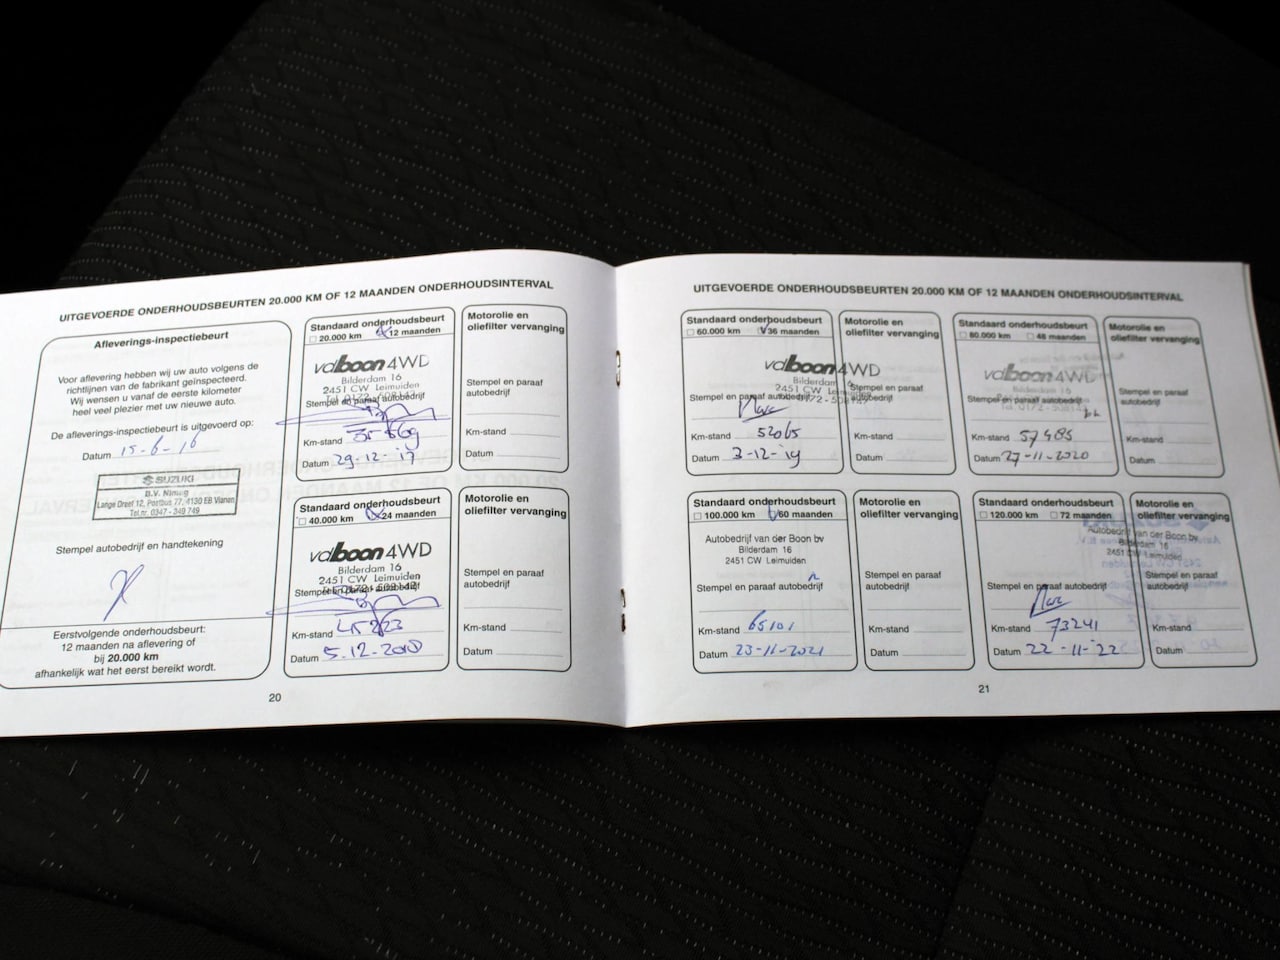 UITGEVOERDE ONDERHOUDSBEURTEN 20.000 KM OF 12 MAANDEN ONDERHOUDSINTERVAL
Afleverings-inspectiebeurt
Voor aflevering hebben wij uw auto volgens de
richtlijnen van de fabrikant geïnspecteerd.
Wij wensen u vanaf de eerste kilometer
heel veel plezier met uw nieuwe auto.
De afleverings-inspectiebeurt is uitgevoerd op:
Datum 15-6-16
SUZUKI
B.V. Nimag
Lange Dreef 12, Postbus 77, 4130 EB Vianen
Tel.nr. 0347 - 349 749
Stempel autobedrijf en handtekening
Eerstvolgende onderhoudsbeurt:
12 maanden na aflevering of
bij 20.000 km
afhankelijk wat het eerst bereikt wordt.
Standaard onderhoudsbeurt
20.000 km 12 maanden
vdboon 4WD
Bilderdam 16
2451 CW Leimuiden
Stempel en paraaf autobedrijf
Km-stand
Datum 29-12-'17
Motorolie en
oliefilter vervanging
Stempel en paraaf
autobedrijf
Km-stand
Datum
Standaard onderhoudsbeurt
40.000 km 24 maanden
vdboon 4WD
Bilderdam 16
2451 CW Leimuiden
Stempel en paraaf autobedrijf
Km-stand
Datum 5.12-2018
Motorolie en
oliefilter vervanging
Stempel en paraaf
autobedrijf
Km-stand
Datum
20
UITGEVOERDE ONDERHOUDSBEURTEN 20.000 KM OF 12 MAANDEN ONDERHOUDSINTERVAL
Standaard onderhoudsbeurt
60.000 km 36 maanden
vdboon 4WD
Bilderdam 16
2451 CW Leimuiden
Stempel en paraaf autobedrijf
Km-stand 52065
Datum 3-12-'19
Motorolie en
oliefilter vervanging
Stempel en paraaf
autobedrijf
Km-stand
Datum
Standaard onderhoudsbeurt
80.000 km 48 maanden
vdboon 4WD
Bilderdam 16
2451 CW Leimuiden
Stempel en paraaf autobedrijf
Km-stand 57485
Datum 27-11-2020
Motorolie en
oliefilter vervanging
Stempel en paraaf
autobedrijf
Km-stand
Datum
Standaard onderhoudsbeurt
100.000 km 60 maanden
Autobedrijf van der Boon bv
Bilderdam 16
2451 CW Leimuiden
Stempel en paraaf autobedrijf
Km-stand 65101
Datum 23-11-2021
Motorolie en
oliefilter vervanging
Stempel en paraaf
autobedrijf
Km-stand
Datum
Standaard onderhoudsbeurt
120.000 km 72 maanden
Autobedrijf van der Boon bv
Bilderdam 16
2451 CW Leimuiden
Stempel en paraaf autobedrijf
Km-stand 73241
Datum 22-11-'22
Motorolie en
oliefilter vervanging
Stempel en paraaf
autobedrijf
Km-stand
Datum
21